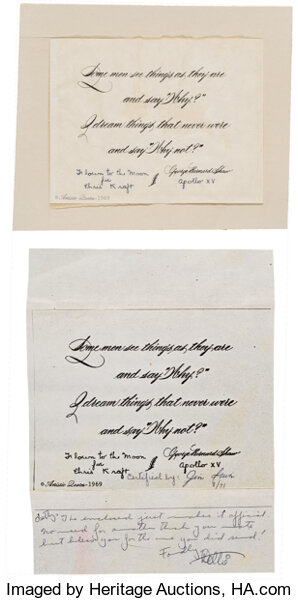 Some men see things, as, they, are
and say "Why?"
I dream things, that never were
and say "Why not?"
To Lown to the Moon
for
Chris Kraft
George Bernard Shaw
Apollo XV
1969
Some men see things, as, they, are
and say "Why?"
I dream things, that never were
and say "Why not?"
for
Chris Kraft
George Bernard Shaw
Apollo XV
Certified by: Jim
8/71
1969
The enclosed just makes it official
no need for another thank you note
but bless you for the one you did send!
Imaged by Heritage Auctions, HA.com